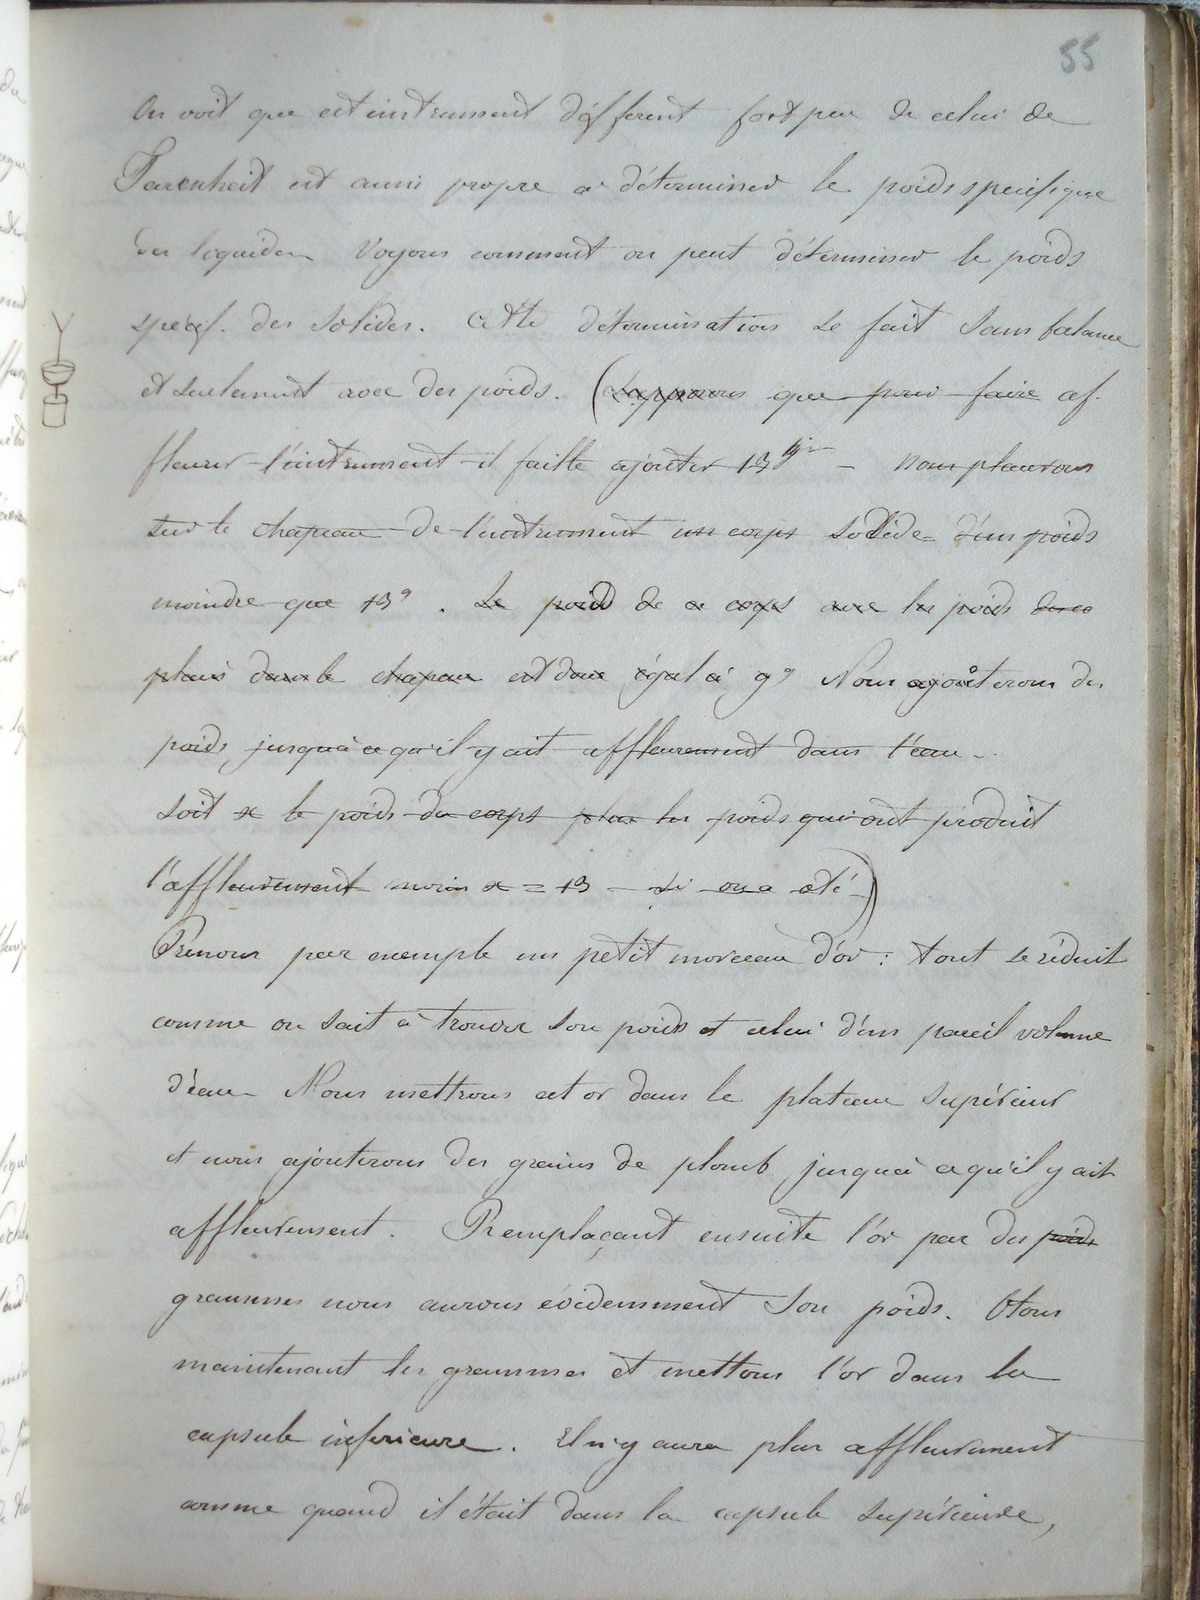 55
On voit que cet instrument différent fort peu de celui de
Farenheit est aussi propre à déterminer le poids specifique
des liquides Voyons comment on peut déterminer le poids
specif. des solides. Cette détermination se fait sans balance
et seulement avec des poids. (Supposons que pour faire af-
fleurer l'instrument il faille ajouter 13 gr - nous placerons
sur le chapeau de l'instrument un corps solide d'un poids
moindre que 13g. Le poids de ce corps avec les poids
placés dans le chapeau est donc égal à 9g Nous ajouterons des
poids jusqu'à ce qu'il y ait affleurement dans l'eau -
soit x le poids du corps plus les poids qui ont produit
l'affleurement moins x = 13 - si on a été)
Prenons par exemple un petit morceau d'or : tout se réduit
comme on sait à trouver son poids et celui d'un pareil volume
d'eau - Nous mettrons cet or dans le plateau supérieur
et nous ajouterons des grains de plomb jusqu'à ce qu'il y ait
affleurement. Remplaçant ensuite l'or par des poids
grammes nous aurons évidemment son poids. Otons
maintenant les grammes et mettons l'or dans la
capsule inferieure. Il n'y aura plus affleurement
comme quand il était dans la capsule supérieure,